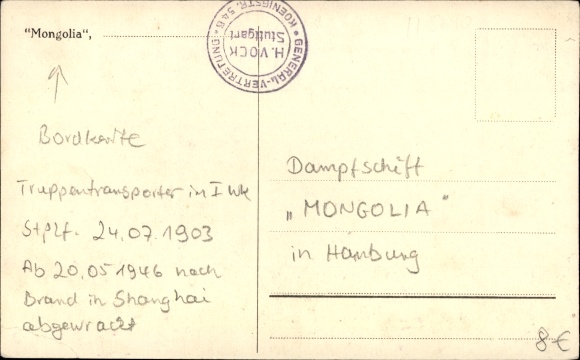 "Mongolia",
GENERAL-VERTRETUNG
KOENIGSTR. 54B
H. VOCK
Stuttgart
Bordkarte
Truppentransporter im I Wk
Stplf. 24.07.1903
Ab 20.05.1946 nach
Brand in Shanghai
abgewrackt
Dampfschiff
„MONGOLIA"
in Hamburg
8€